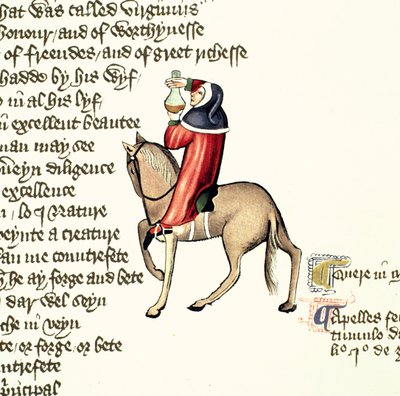 hat was called virginius
honour/and of worthynesse
of freendes/and of greet richesse
hadde by his wyf/
in al his lyf/
excellent beautee
man may see
diligence
excellence
Nature
peynte a creature
me countrefete
he ay forge and bete
dar wel seyn
che in veyn
te/or forge/or bete
ntrefete
principal
Quere in
Apelles fe
tumulo da